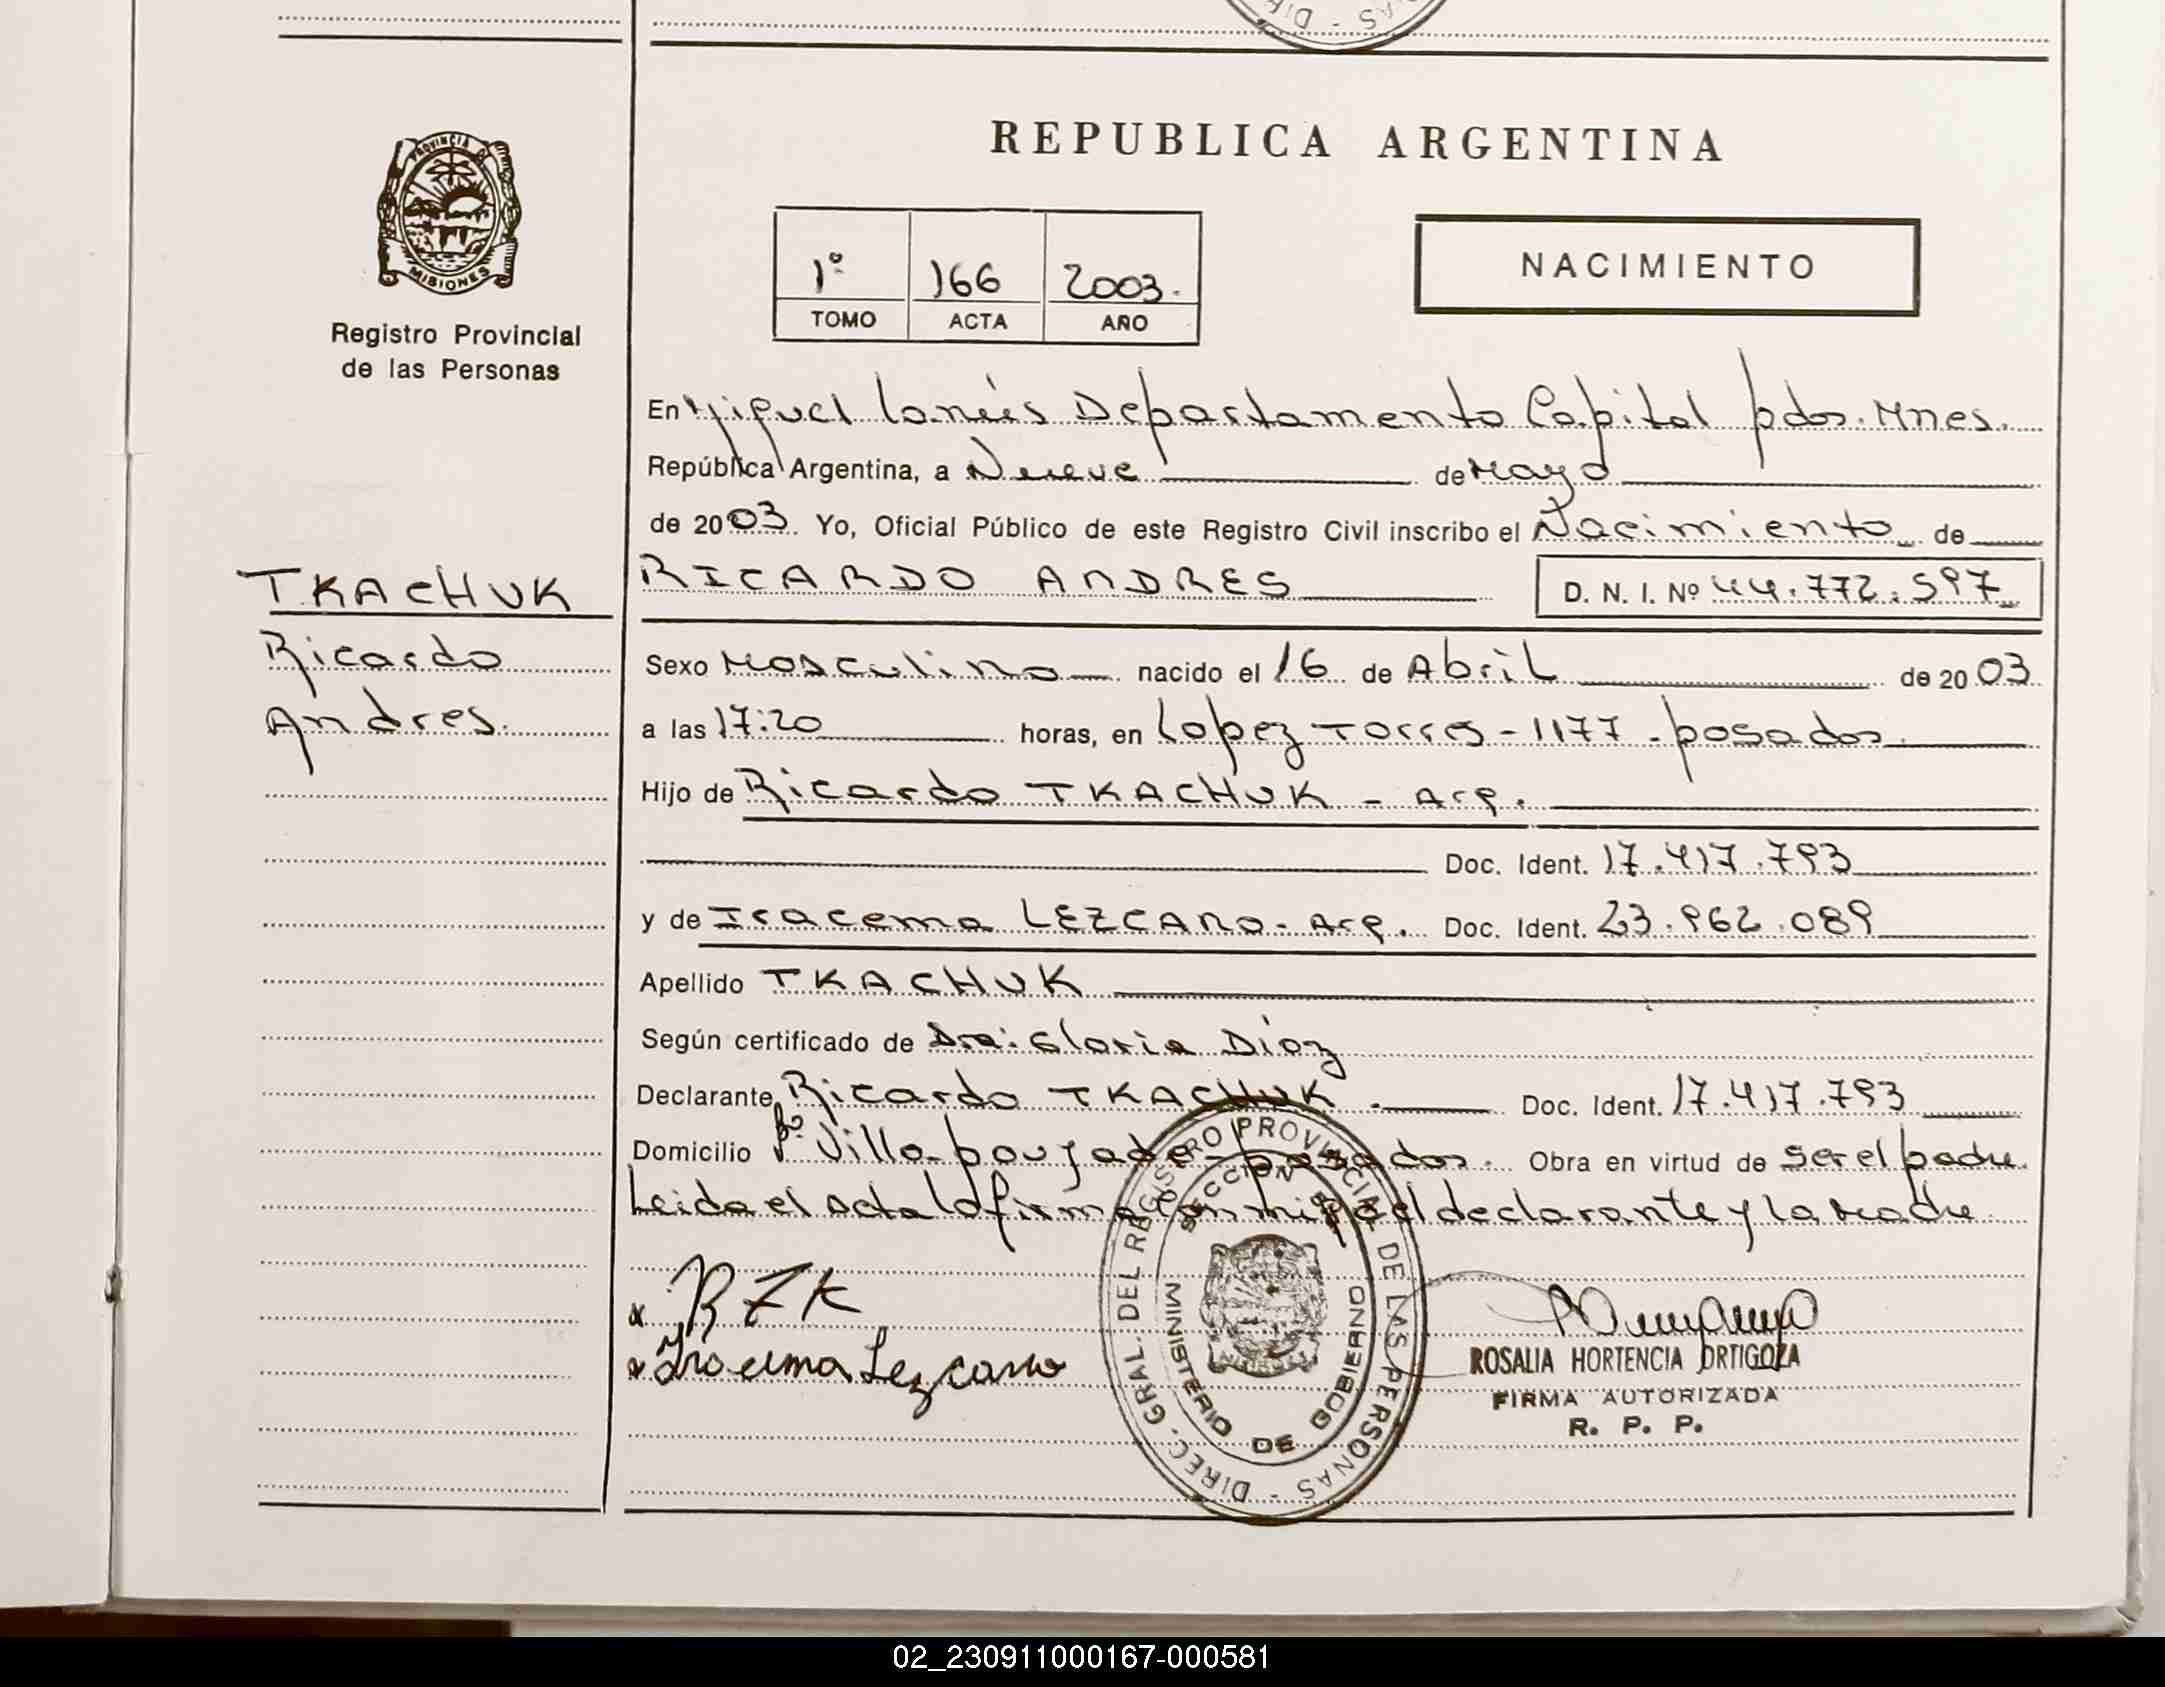 REPUBLICA ARGENTINA
PROVINCIA DE
MISIONES
Registro Provincial
de las Personas
1º 166 2003.
TOMO ACTA AÑO
NACIMIENTO
En Miguel Lanús Departamento Capital pdas. Mnes.
República Argentina, a Nueve de Mayo
de 2003. Yo, Oficial Público de este Registro Civil inscribo el Nacimiento de
TKACHUK
Ricardo
Andres.
RICARDO ANDRES D. N. I. Nº 44.772.597
Sexo Masculino nacido el 16 de Abril de 2003
a las 17:20 horas, en Lopez Torres - 1177 - posadas.
Hijo de Ricardo TKACHUK - Arg.
Doc. Ident. 17.417.793
y de Iracema LEZCANO - Arg. Doc. Ident. 23.962.089
Apellido TKACHUK
Según certificado de Dra: Gloria Díaz
Declarante Ricardo TKACHUK. Doc. Ident. 17.417.793
Domicilio Bº Villa poujade - posadas. Obra en virtud de ser el padre.
Leida el acta la firma con migo el declarante y la Madre
x RTK
x Iracema Lezcano
DIREC. GRAL. DEL REGISTRO PROVINCIAL DE LAS PERSONAS -
SECCION
MINISTERIO DE GOBIERNO
ROSALIA HORTENCIA ORTIGOZA
FIRMA AUTORIZADA
R. P. P.
02_230911000167-000581